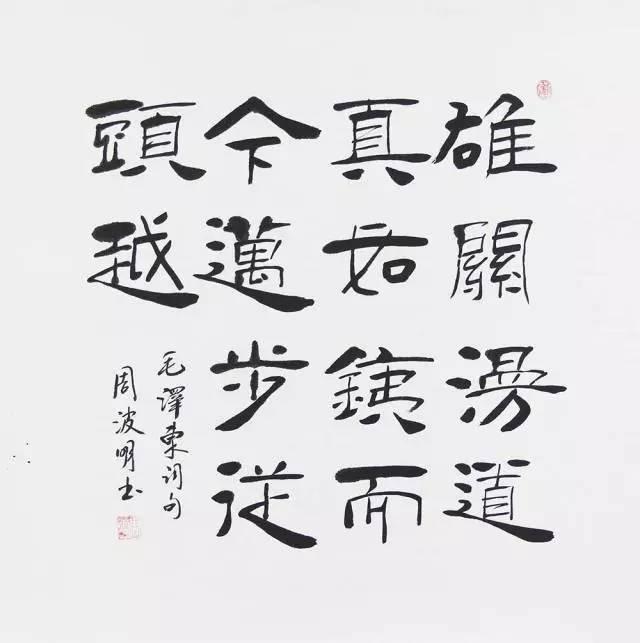 雄關漫道
真如銕而
今邁步從
頭越
毛澤東詞句
周波明书